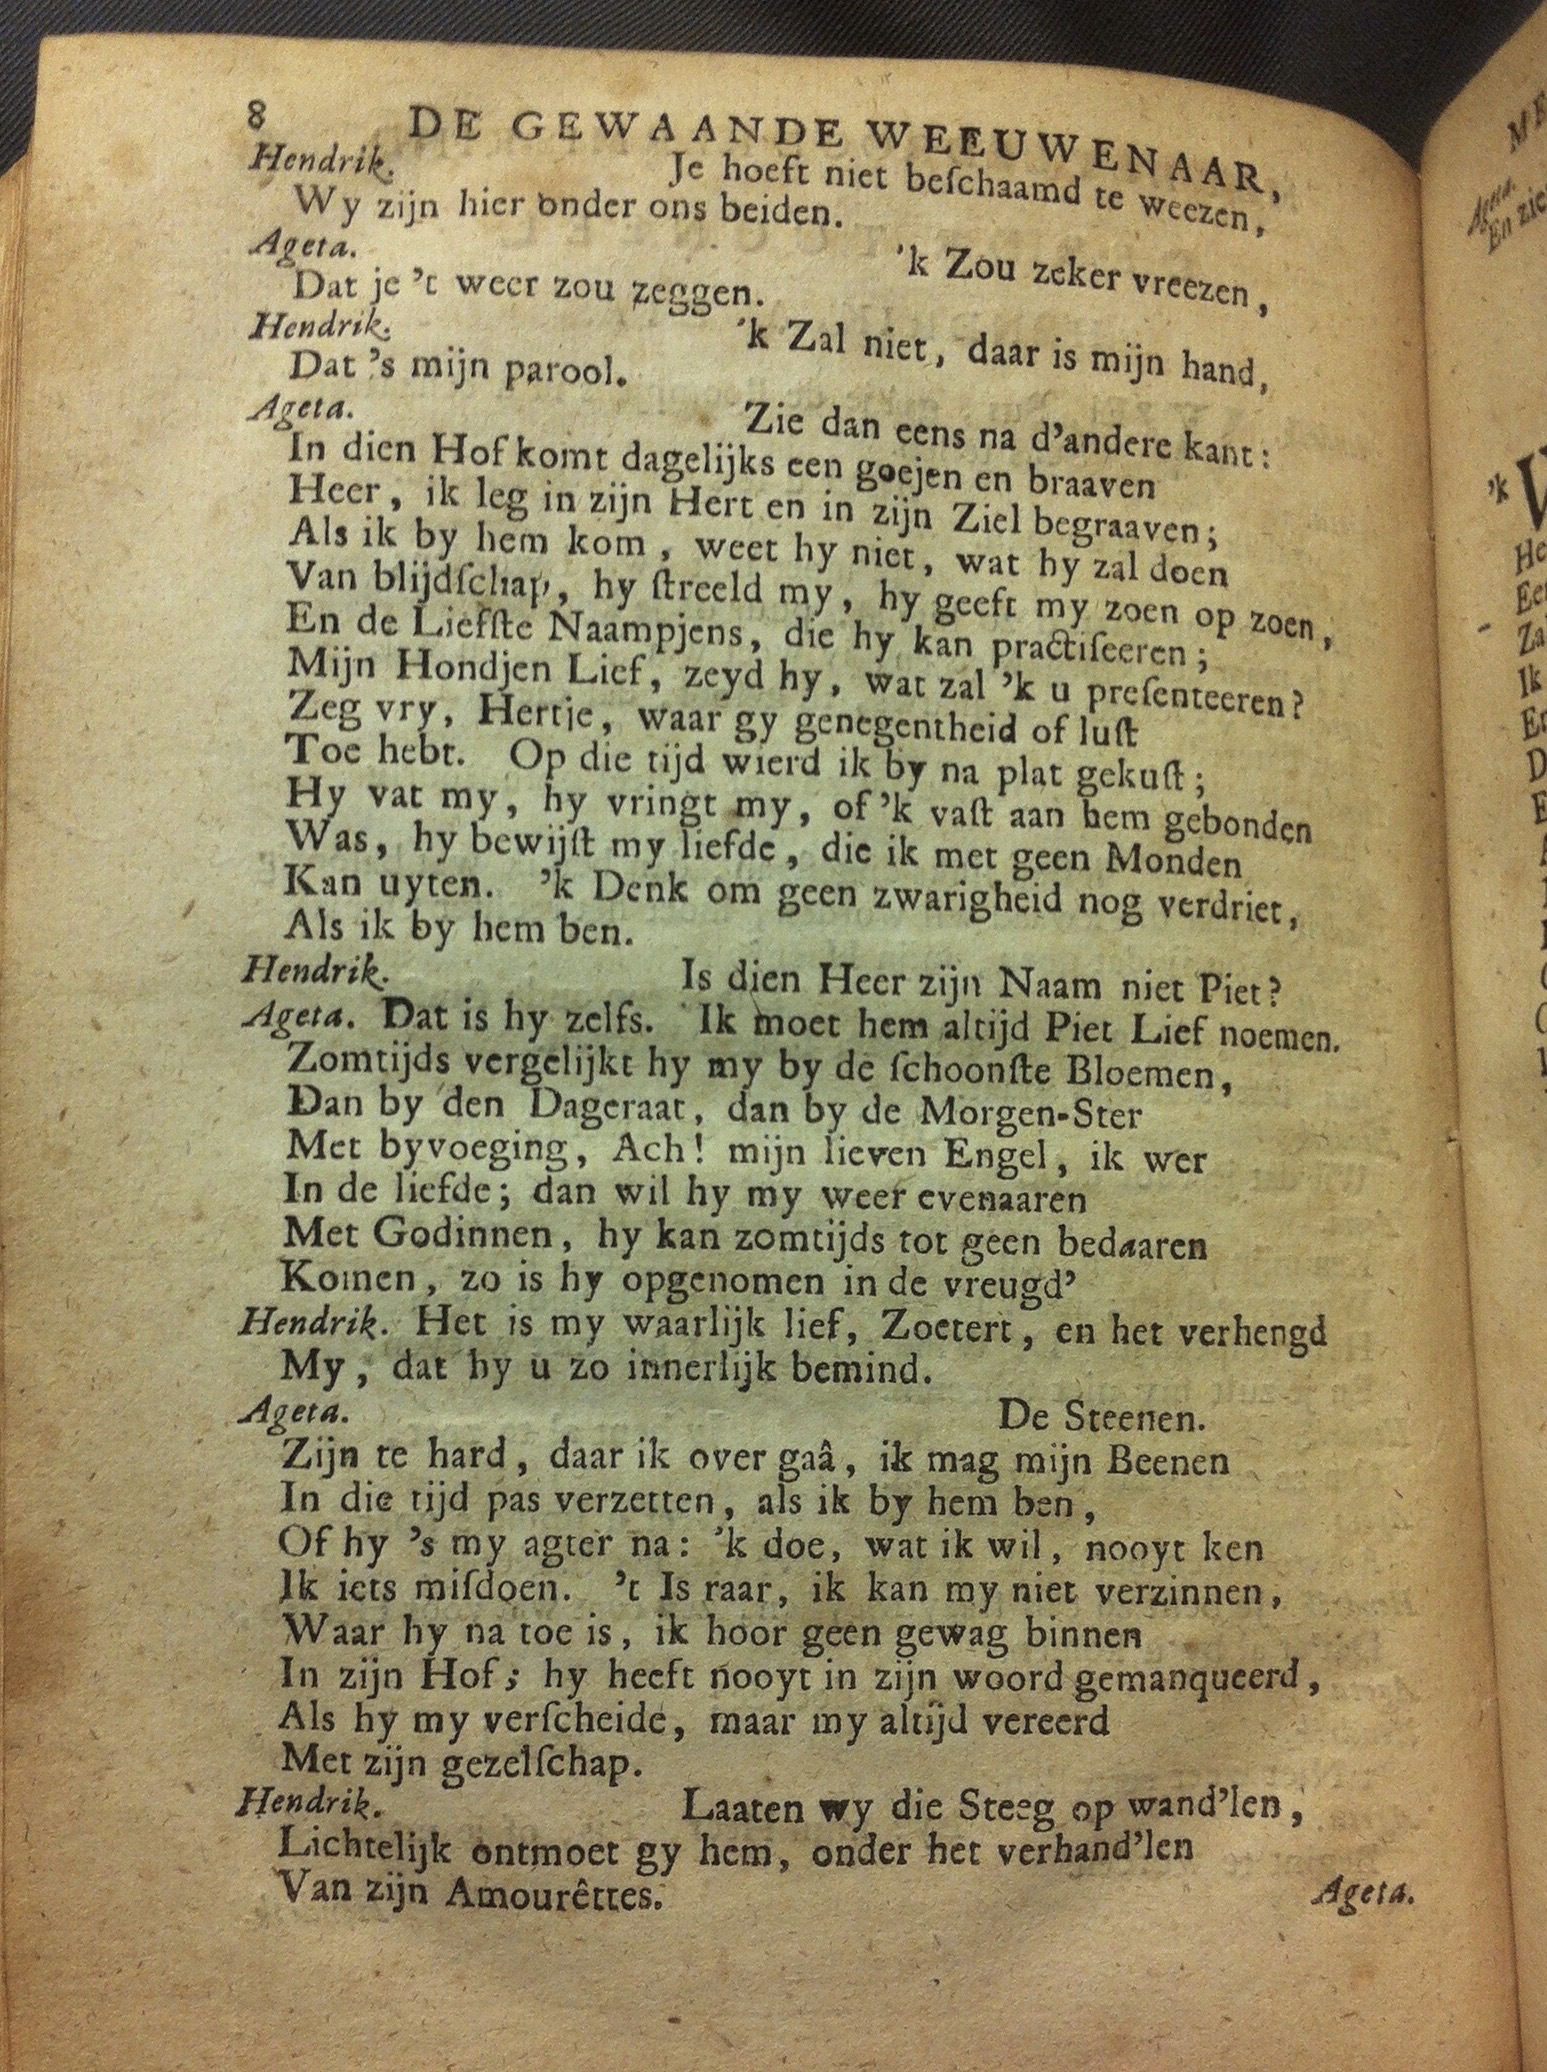 8 DE GEWAANDE WEEUWENAAR,
Hendrik. Je hoeft niet beſchaamd te weezen,
Wy zijn hier onder ons beiden.
Ageta. 'k Zou zeker vreezen,
Dat je 't weer zou zeggen.
Hendrik. 'k Zal niet, daar is mijn hand,
Dat 's mijn parool.
Ageta. Zie dan eens na d'andere kant:
In dien Hof komt dagelijks een goejen en braaven
Heer, ik leg in zijn Hert en in zijn Ziel begraaven;
Als ik by hem kom, weet hy niet, wat hy zal doen
Van blijdſchap, hy ſtreeld my, hy geeft my zoen op zoen,
En de Liefſte Naampjens, die hy kan practiſeeren;
Mijn Hondjen Lief, zeyd hy, wat zal 'k u preſenteeren?
Zeg vry, Hertje, waar gy genegentheid of luſt
Toe hebt. Op die tijd wierd ik by na plat gekuſt;
Hy vat my, hy vringt my, of 'k vaſt aan hem gebonden
Was, hy bewijſt my liefde, die ik met geen Monden
Kan uyten. 'k Denk om geen zwarigheid nog verdriet,
Als ik by hem ben.
Hendrik. Is dien Heer zijn Naam niet Piet?
Ageta. Dat is hy zelfs. Ik moet hem altijd Piet Lief noemen.
Zomtijds vergelijkt hy my by de ſchoonſte Bloemen,
Dan by den Dageraat, dan by de Morgen-Ster
Met byvoeging, Ach! mijn lieven Engel, ik wer
In de liefde; dan wil hy my weer evenaaren
Met Godinnen, hy kan zomtijds tot geen bedaaren
Komen, zo is hy opgenomen in de vreugd'
Hendrik. Het is my waarlijk lief, Zoetert, en het verhengd
My, dat hy u zo innerlijk bemind.
Ageta. De Steenen.
Zijn te hard, daar ik over gaâ, ik mag mijn Beenen
In die tijd pas verzetten, als ik by hem ben,
Of hy 's my agter na: 'k doe, wat ik wil, nooyt ken
Ik iets miſdoen. 't Is raar, ik kan my niet verzinnen,
Waar hy na toe is, ik hoor geen gewag binnen
In zijn Hof; hy heeft nooyt in zijn woord gemanqueerd,
Als hy my verſcheide, maar my altijd vereerd
Met zijn gezelſchap.
Hendrik. Laaten wy die Steeg op wand'len,
Lichtelijk ontmoet gy hem, onder het verhand'len
Van zijn Amourêttes.
Ageta.